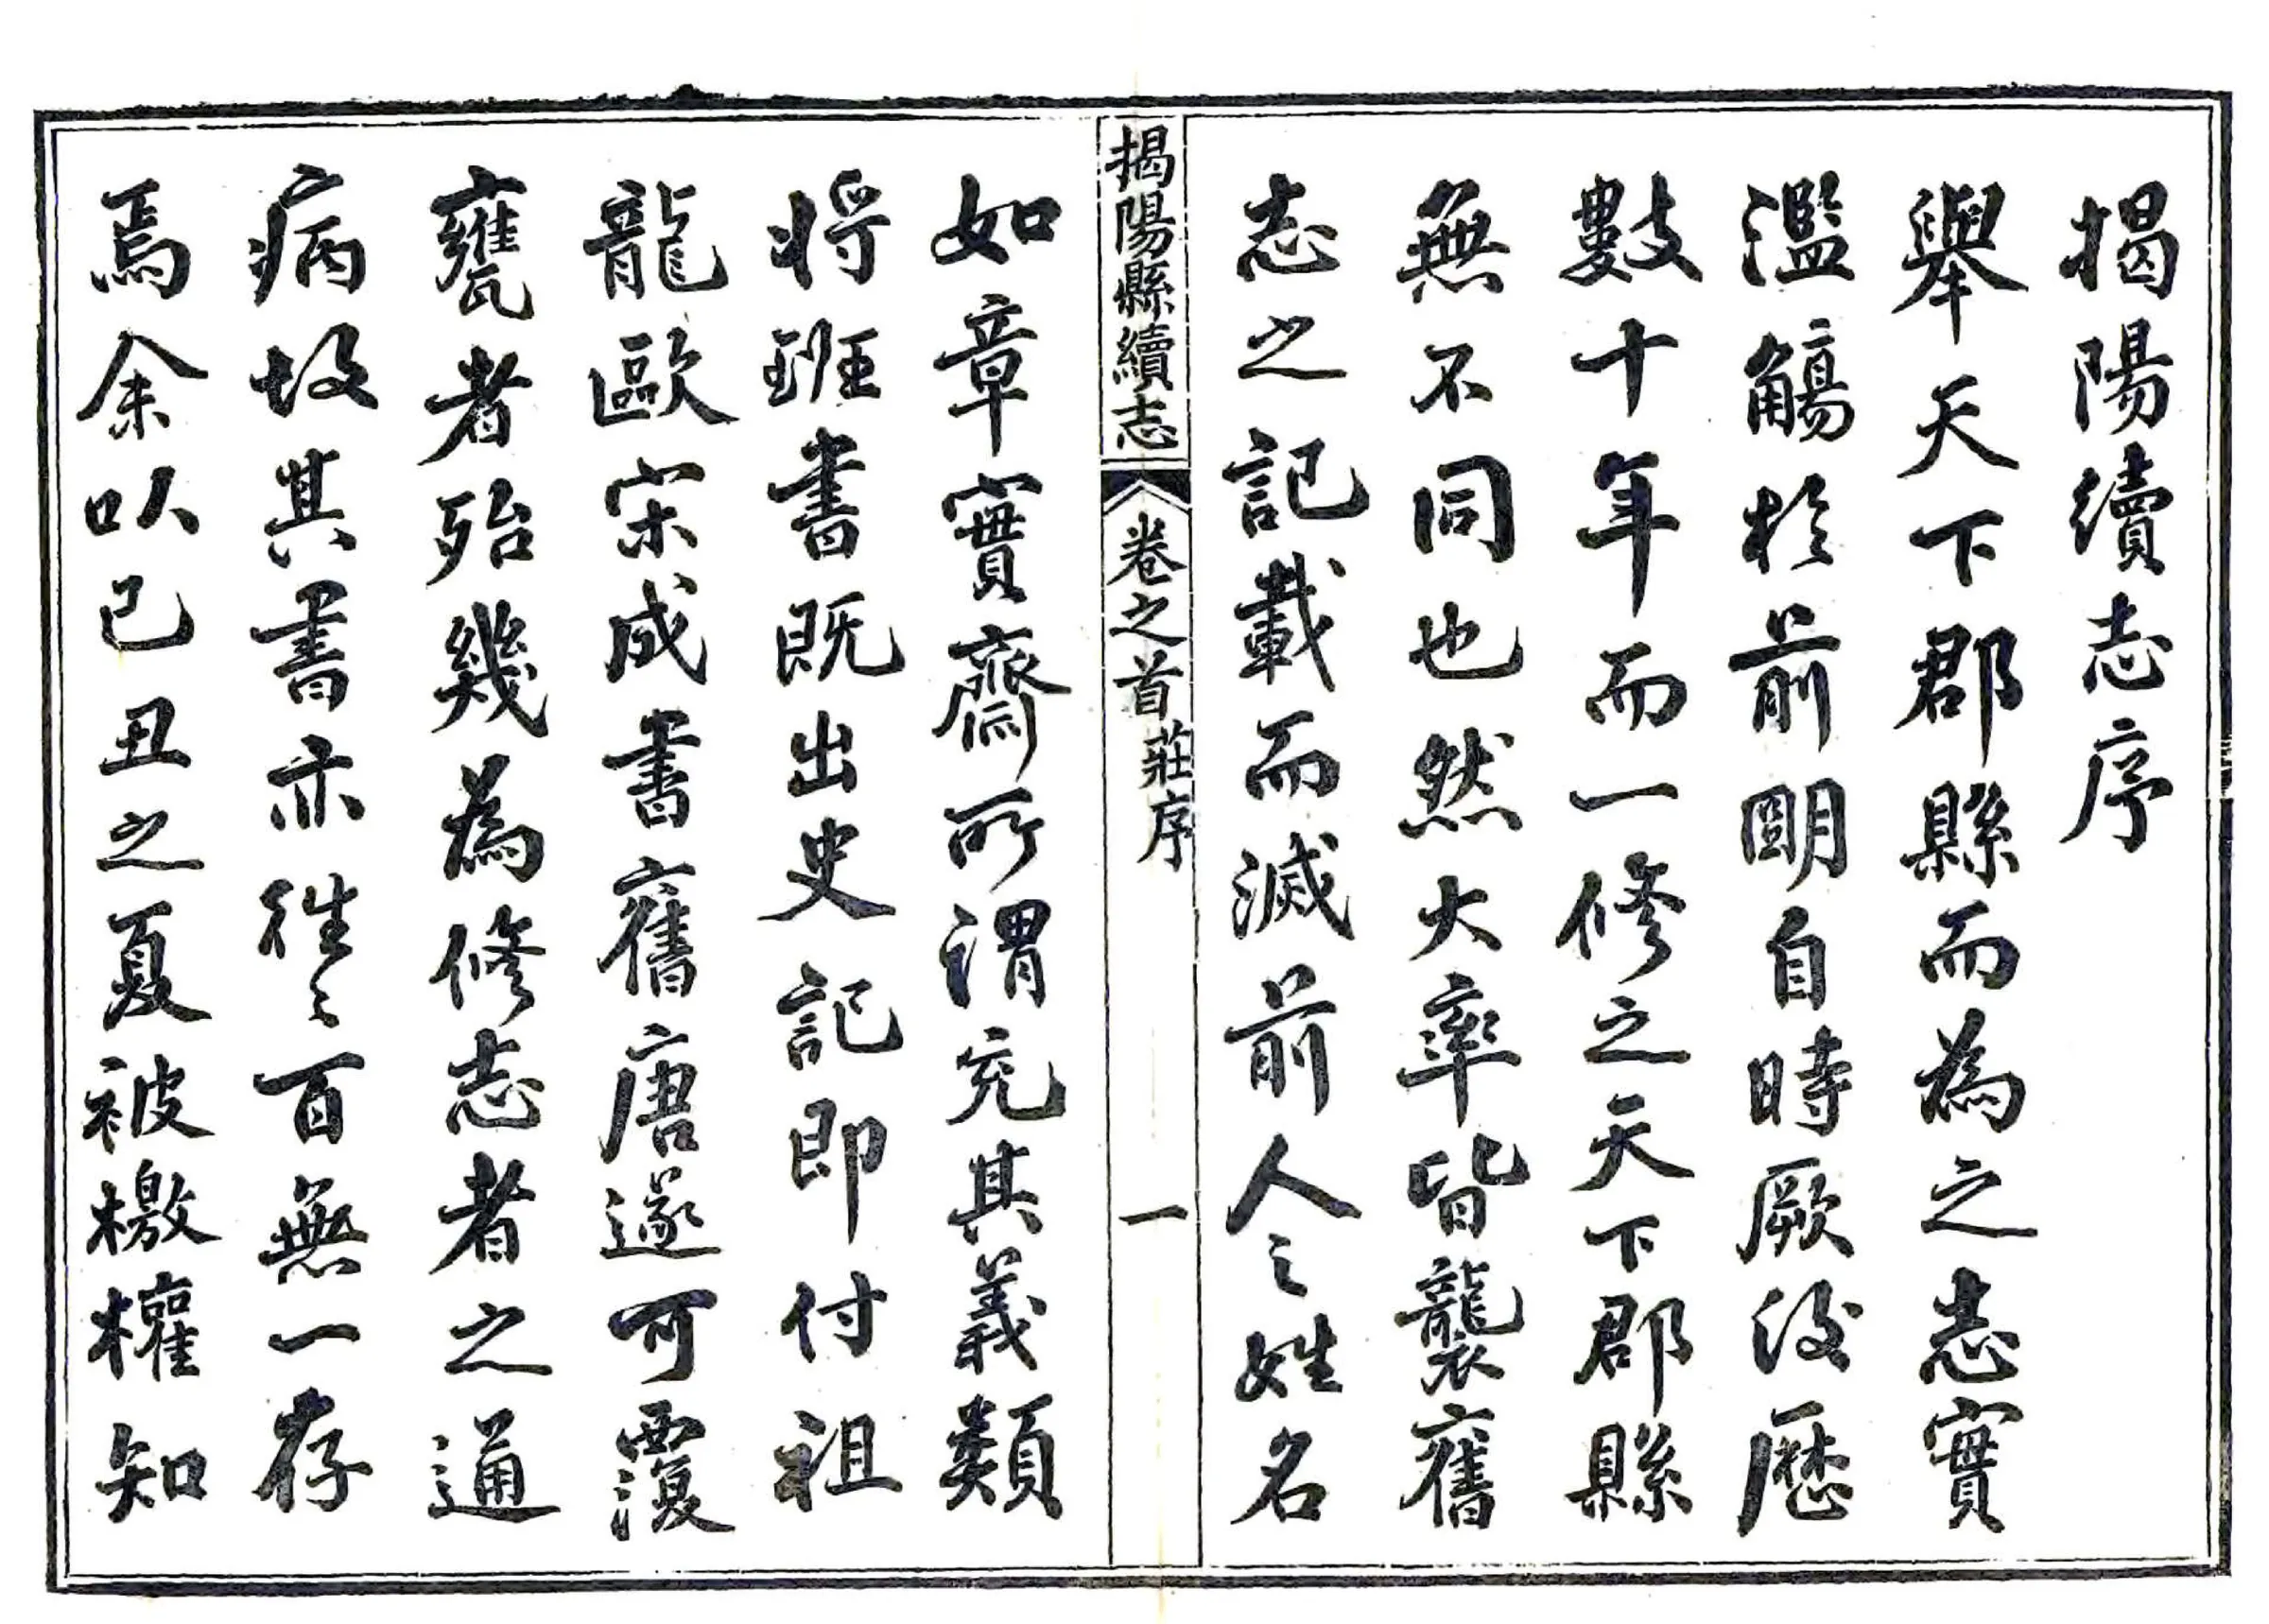 揭陽續志序
舉天下郡縣而為之志實
濫觴於前明自時厥後歷
數十年而一修之天下郡縣
無不同也然大率皆襲舊
志之記載而滅前人之姓名
揭陽縣續志
卷之首
莊序
一
如章實齋所謂充其義類
將班書既出史記即付祖
龍歐宋成書舊唐遂可覆
甕者殆幾為修志者之通
病故其書亦往〻百無一存
焉余以己丑之夏被檄權知